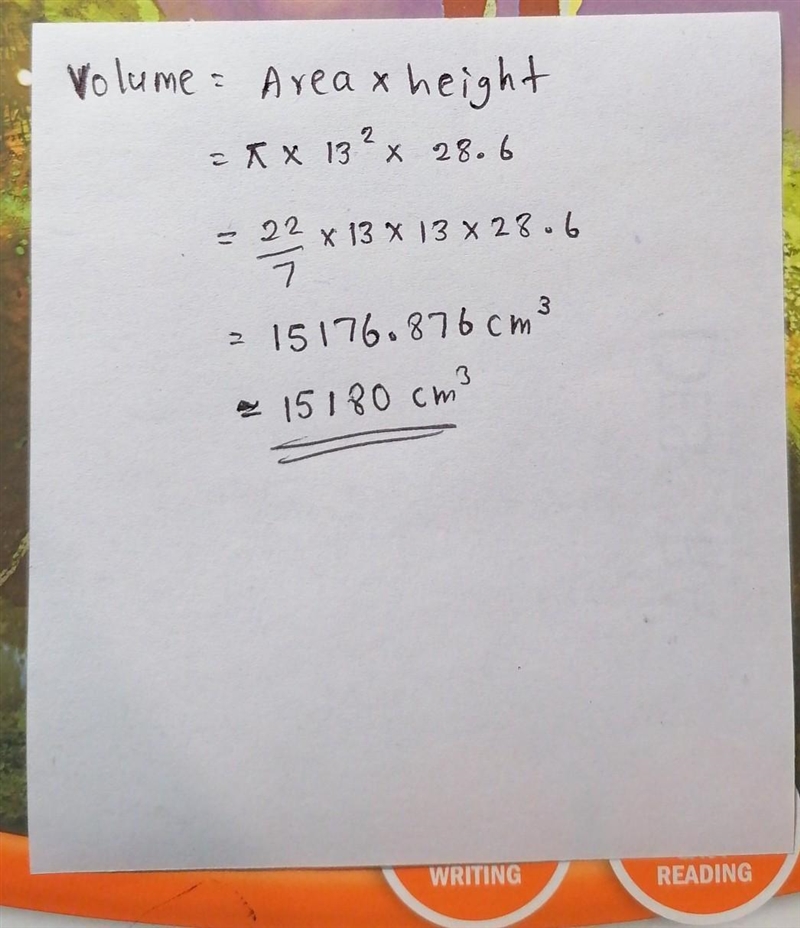 Volume = Area x height
= π x 13² x 28.6
= 22/7 x 13 x 13 x 28.6
= 15176.876 cm³
≃ 15180 cm³
WRITING
READING